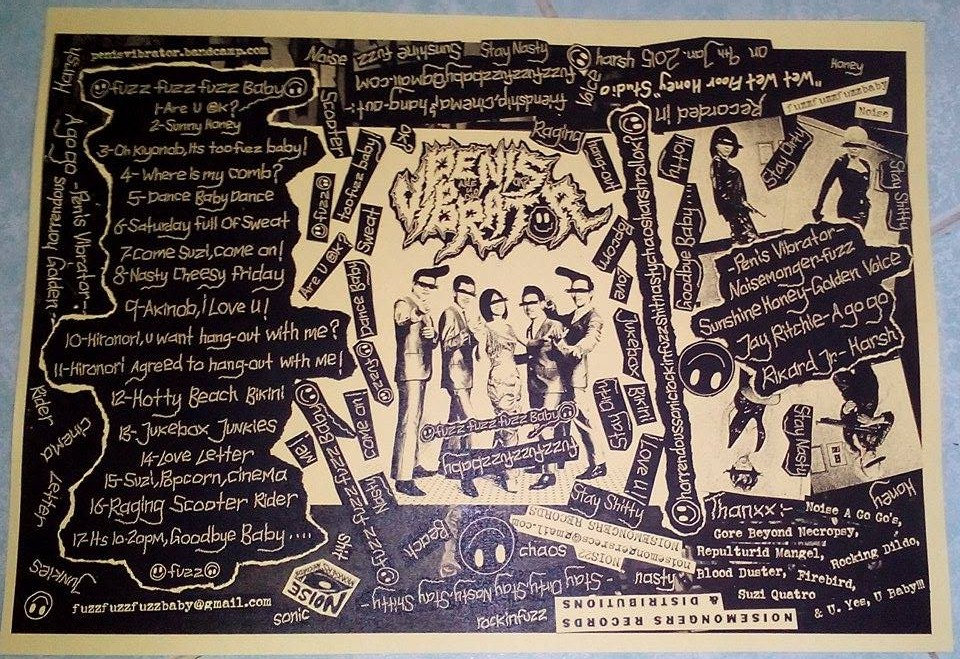 penisvibrator.bandcamp.com
fuzz-fuzz-fuzz Baby
1-Are U @k?
2-Sunny Honey
3-Oh Kiyonob, Its too fuzz baby!
4-Where is my comb?
5-Dance Baby Dance
6-Saturday full Of Sweat
7-Come Suzi, Come on!
8-Nasty Cheesy friday
9-Akinob, i Love U!
10-Hironori, u want hang-out with me?
11-Hironori Agreed to hang-out with me!
12-Hotty Beach Bikini
13-Jukebox Junkies
14-Love Letter
15-Suzi, Popcorn, Cinema
16-Raging Scooter Rider
17-Its 10-20pm, Goodbye Baby....
fuzz
fuzzfuzzfuzzbaby@gmail.com
Honey
A go go
-Penis Vibrator-
Golden
Rider
Cinema
Letter
Junkies
Noise
fuzz
Sunshine
Stay Nasty
fuzzfuzzfuzzbaby@gmail.com
friendship, cinema, hang-out:-
Scooter
Voice
harsh
on 9th Jan. 2015
"Wet Wet Floor Honey" Studio
Recorded in:
Honey
fuzzfuzzfuzzbaby
Noise
Raging
PENIS
VIBRATOR
too fuzz baby
fuzz
Sweat
Are U @k?
Dance Baby
fuzz
Come on!
Nasty
me!
Shit
fuzz fuzz fuzz Baby
fuzzfuzzfuzzbaby
Love
Jukebox
Bikini
Stay Dirty
I Love U!
Stay Shitty
Hotty
Goodbye Baby...
horrendoussonicrockinfuzzshitnastychaosharshrollok?
Stay Dirty
Stay Shitty
-Penis Vibrator-
Noisemonger-fuzz
Sunshine Honey-Golden Voice
Jay Ritchie-A go go
Rikard Jr-Harsh
Stay Nasty
Honey
Thanxx:-
Noise A Go Go's,
Gore Beyond Necropsy,
Repulturid Mangel,
Rocking Dildo,
Blood Duster, Firebird,
Suzi Quatro
& U, Yes, U Baby!!!
Beach
chaos
NOISE RECORDS
noisemongersrecs@gmail.com
NOISEMONGERS RECORDS
nasty
-Stay Dirty, Stay Nasty, Stay Shitty-
NOISE
sonic
rockinfuzz
NOISEMONGERS RECORDS
& DISTRIBUTIONS